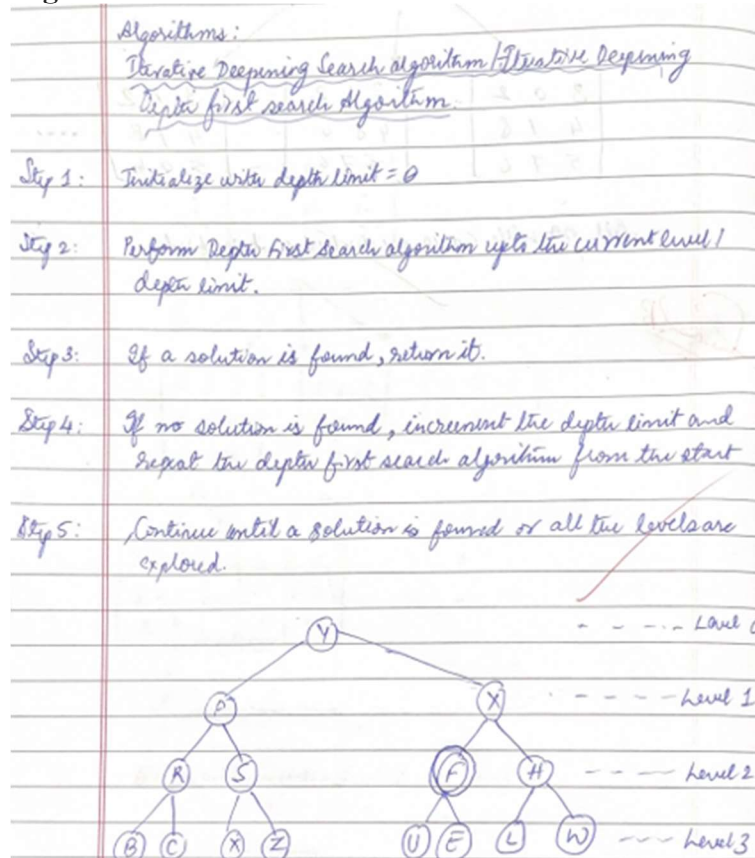 Algorithms:
Iterative Deepening Search algorithm/Iterative Deepening
Depth first search Algorithm.
Step 1: Initialize with depth limit = 0
Step 2: Perform Depth First Search algorithm upto the current level/
depth limit.
Step 3: If a solution is found, return it.
Step 4: If no solution is found, increment the depth limit and
repeat the depth first search algorithm from the start
Step 5: Continue until a solution is found or all the levels are
explored.
Y - - - - Level 0
P X - - - - Level 1
R S F H - - - - Level 2
B C X Z U E L W - - - Level 3